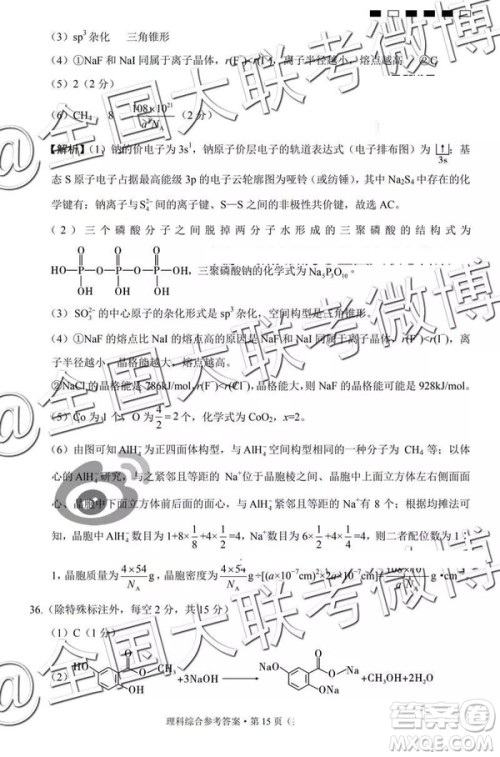 （3）sp³杂化　三角锥形
（4）①NaF和NaI同属于离子晶体，r(F⁻)<r(I⁻)，离子半径越小，熔点越高　②C
（5）2（2分）
（6）CH₄　8　108×10²¹/a³N_A（2分）
【解析】（1）钠的价电子为3s¹，钠原子价层电子的轨道表达式（电子排布图）为 ↑ 3s；基
态S原子电子占据最高能级3p的电子云轮廓图为哑铃（或纺锤）形，其中Na₂S₄中存
在化学键有：钠离子与S₄²⁻间的离子键、S—S之间的非极性共价键，故选AC。
（2）三个磷酸分子之间脱掉两分子水形成的三聚磷酸的结构式为
HO O O O OH，三聚磷酸钠的化学式为Na₅P₃O₁₀。
P O P O P
OH OH OH
（3）SO₃²⁻的中心原子的杂化形式是sp³杂化，空间构型是三角锥形。
（4）①NaF的熔点比NaI的熔点高的原因是NaF和NaI同属于离子晶体，r(F⁻)<r(I⁻)，离
子半径越小，晶格能越大，熔点越高。
②NaCl的晶格能是786kJ/mol，r(F⁻)<r(Cl⁻)，晶格能大，则NaF的晶格能可能是928kJ/mol。
（5）Co为1个，O为4/2=2个，化学式为CoO₂，x=2。
（6）由图可知AlH₄⁻为正四面体构型，与AlH₄⁻空间构型相同的一种分子为CH₄等；以体
心的AlH₄⁻研究，与之紧邻且等距的Na⁺位于晶胞棱之间、晶胞中上面立方体左右侧面
面心、晶胞中下面立方体前后面的面心，与AlH₄⁻紧邻且等距的Na⁺有8个；根据均摊法可
知，晶胞中AlH₄⁻数目为1+8×1/8+4×1/2=4，Na⁺数目为6×1/2+4×1/4=4，则二者配位数为1∶
1，晶胞质量为4×54/N_A g，晶胞密度为4×54/N_A g÷[(a×10⁻⁷cm)²×2a×10⁻⁷
36.（除特殊标注外，每空2分，共15分）
（1）C（1分）
（2）HO O OCH₃ OH +3NaOH → NaO O ONa ONa +CH₃OH+2H₂O
理科综合参考答案·第15页（
@全国大联考微博
@全国大联考微博
@全国大联考微博
答案圈